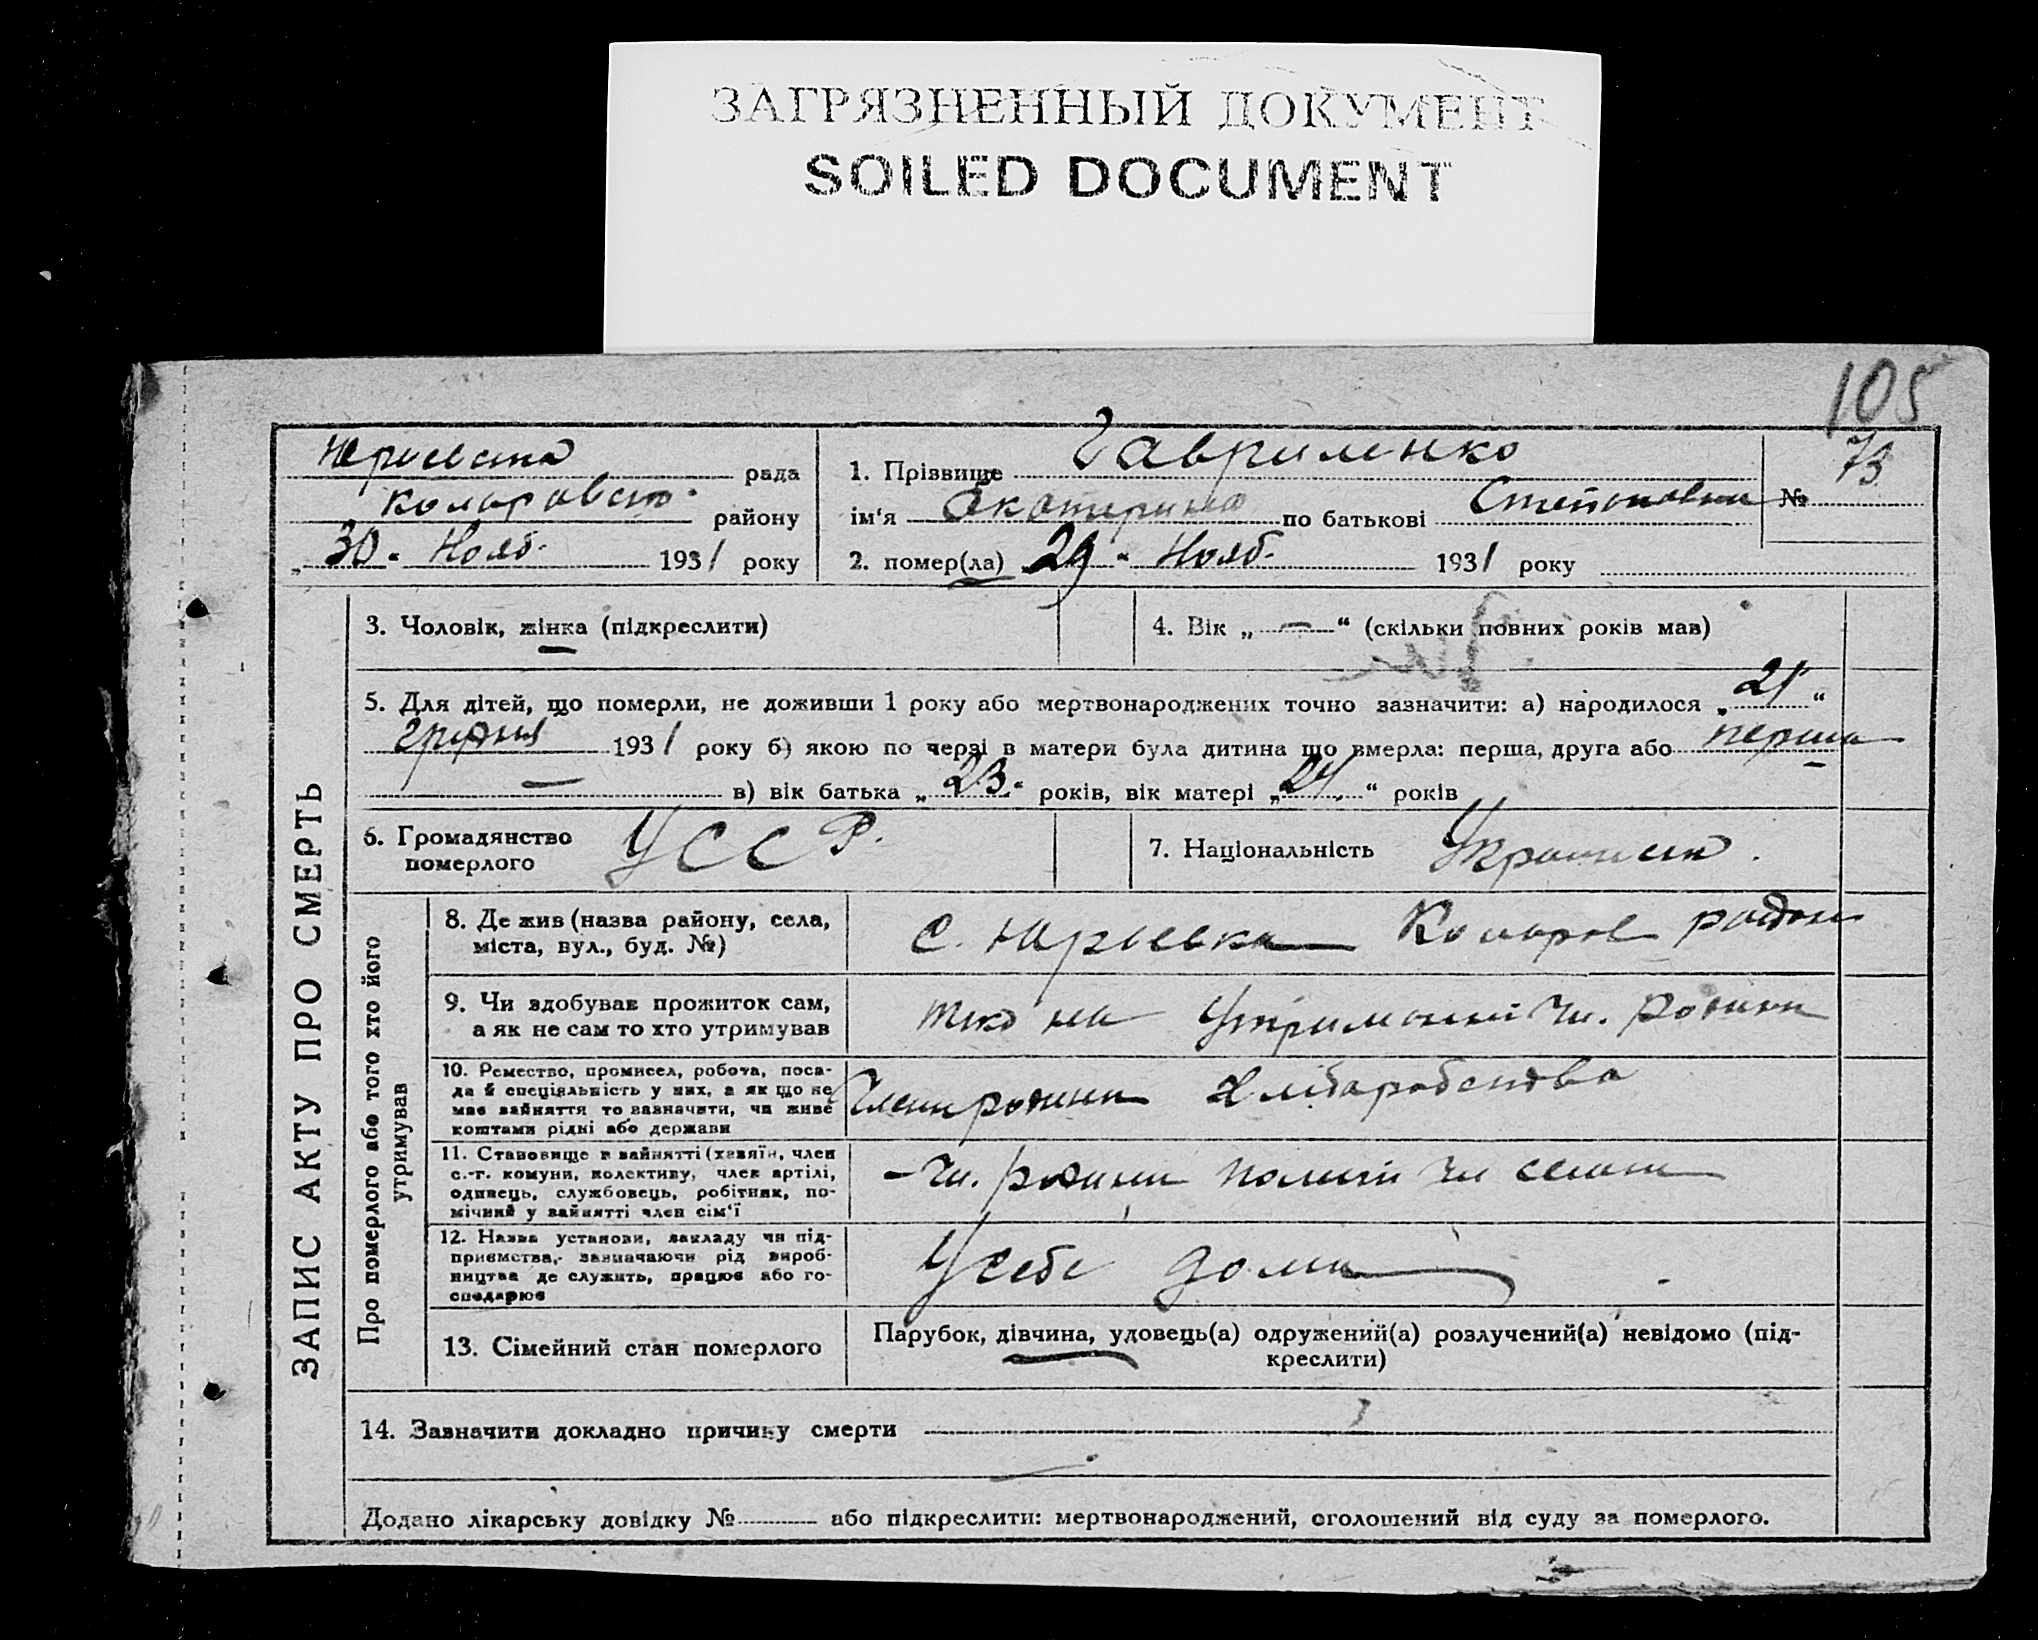 ЗАГРЯЗНЕННЫЙ ДОКУМЕНТ
SOILED DOCUMENT
105
рада
району
„30" Нояб. 1931 року
1. Прізвище Гавриленко
ім'я Екатерина по батькові Степановна
№ 73
2. помер(ла) 29 Нояб. 1931 року
ЗАПИС АКТУ ПРО СМЕРТЬ
3. Чоловік, жінка (підкреслити)
4. Вік „ — “ (скільки повних років мав)
5. Для дітей, що померли, не доживши 1 року або мертвонароджених точно зазначити: а) народилося „ “
грудня 1931 року б) якою по черзі в матери була дитина що вмерла: перша, друга або перша
— в) вік батька „23“ років, вік матері „ “ років
6. Громадянство померлого УССР.
7. Національність
Про померлого або того хто його утримував
8. Де жив (назва району, села,
міста, вул., буд. №)
с. Юрьевка Коларов район
9. Чи здобував прожиток сам,
а як не сам то хто утримував
на Утриманні чл. родини
10. Ремество, промисел, робота, поса-
да й спеціяльність у них, а як що не
має зайняття то зазначити, чи живе
коштами рідні або держави
Член родини Хліборобства
11. Становище в зайнятті (хазяїн, член
с.-г. комуни, колективу, член артілі,
одинець, службовець, робітник, по-
мічний у зайнятті член сім'ї
— чл. родини
12. Назва установи, закладу чи під-
приємства, зазначаючи рід вироб-
ництва де служить, працює або го-
сподарює
У себе дома
13. Сімейний стан померлого
Парубок, дівчина, удовець(а) одружений(а) розлучений(а) невідомо (під-
креслити)
14. Зазначити докладно причину смерти
Додано лікарську довідку № або підкреслити: мертвонароджений, оголошений від суду за померлого.